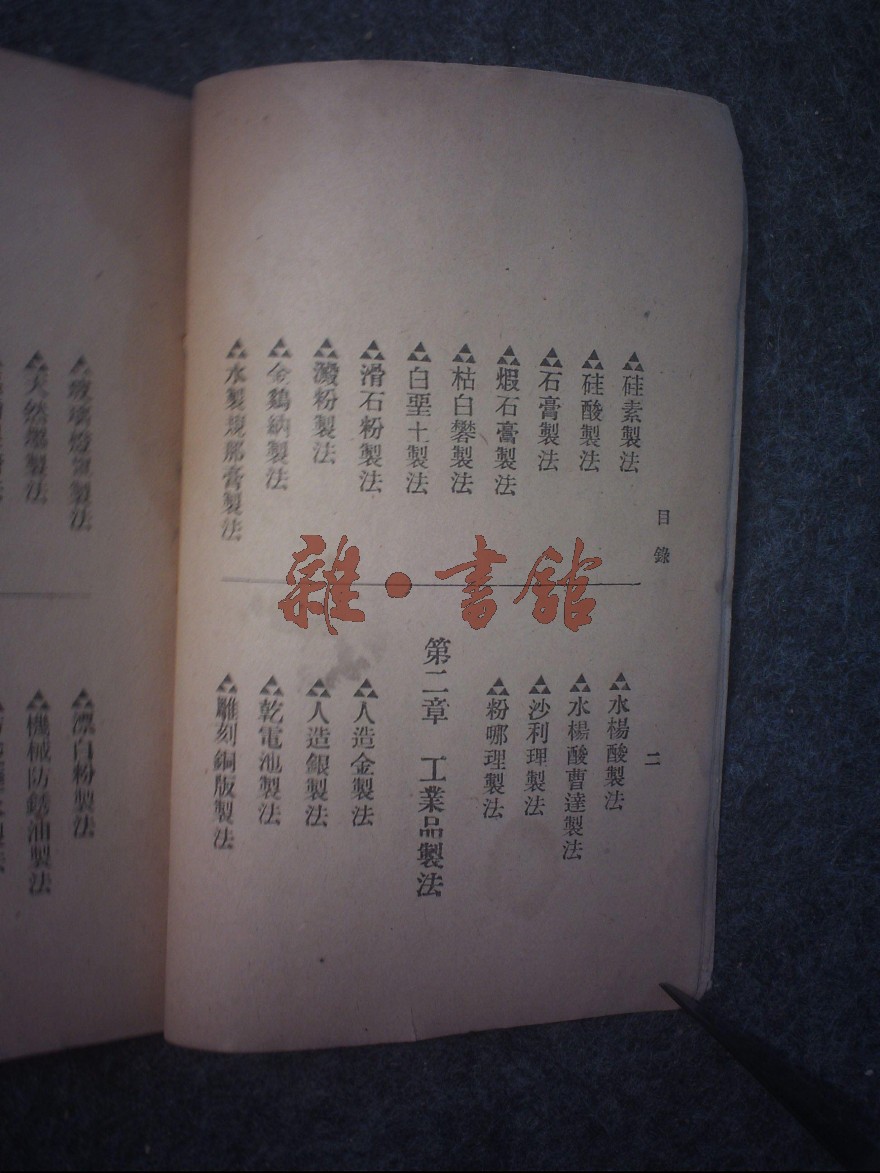 目錄
二
硅素製法
硅酸製法
石膏製法
煆石膏製法
枯白礬製法
白堊土製法
滑石粉製法
澱粉製法
金鷄納製法
水製規那膏製法
水楊酸製法
水楊酸曹達製法
沙利理製法
粉哪理製法
第二章 工業品製法
人造金製法
人造銀製法
乾電池製法
雕刻銅版製法
雜·書館
製法
天然墨製法
漂白粉製法
機械防銹油製法